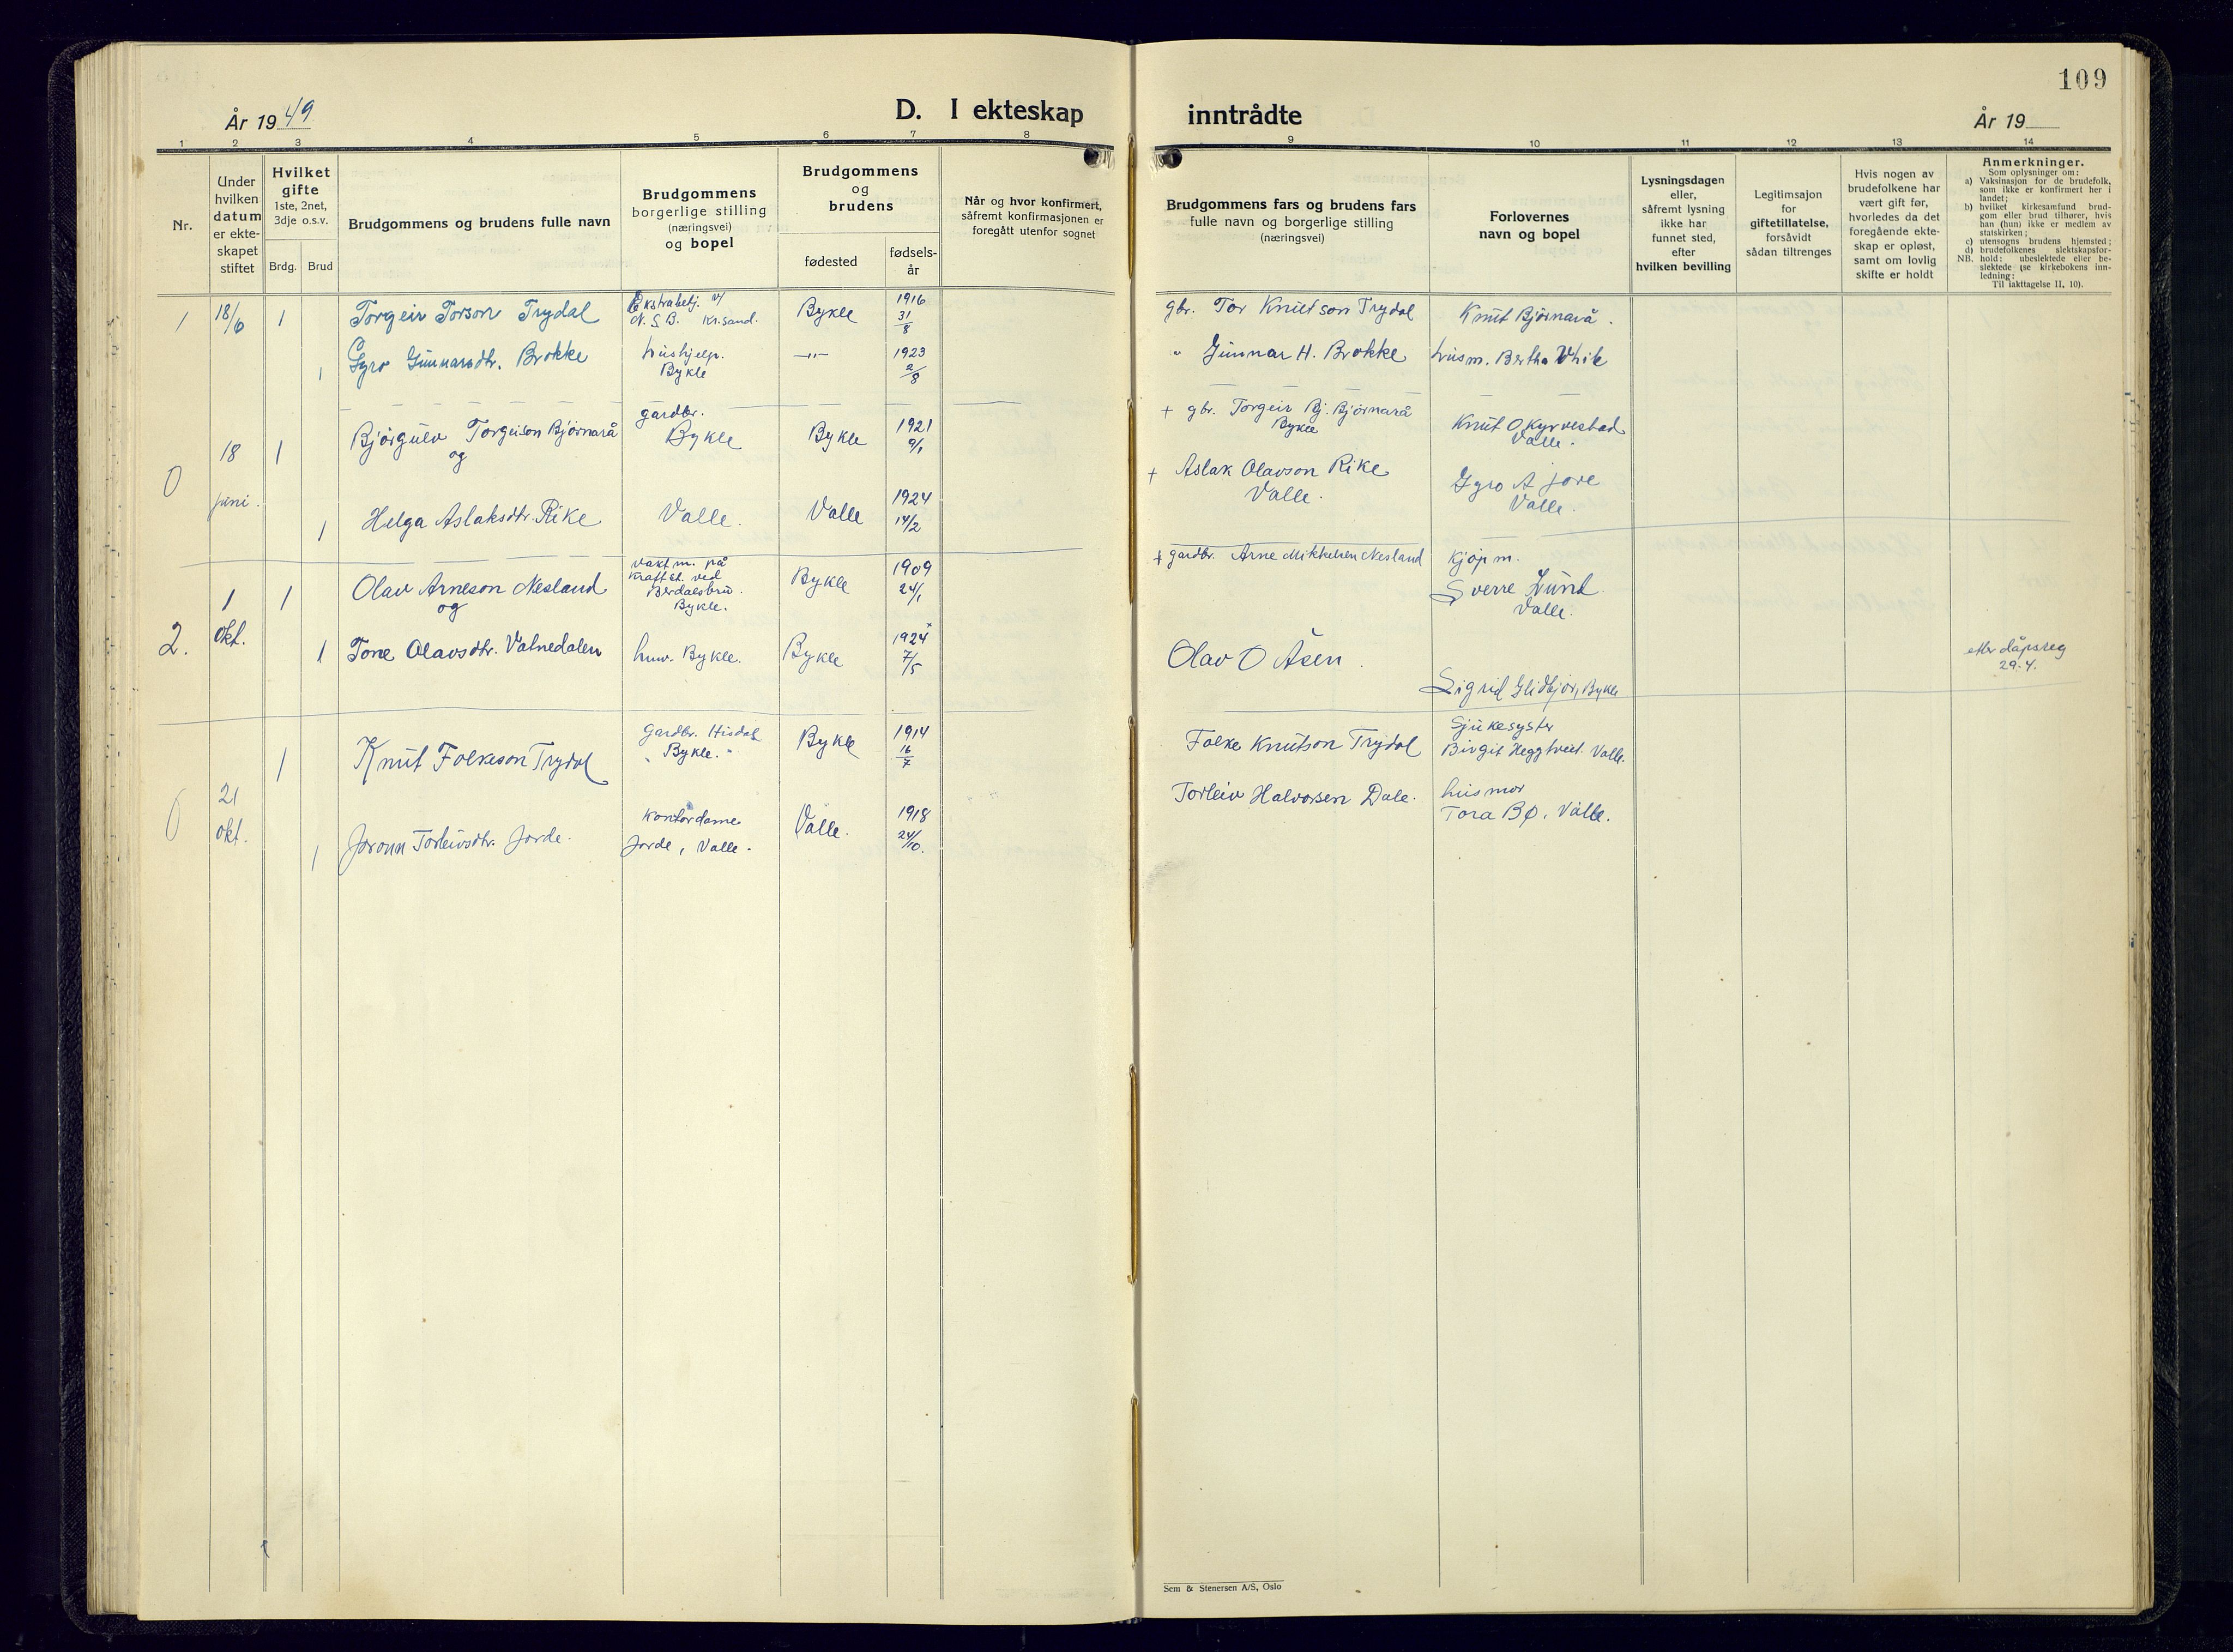 109
År 1949
D. I ekteskap inntrådte
År 19
1 2 3 4 5 6 7 8 9 10 11 12 13 14
Nr.
Under
hvilken
datum
er ekte-
skapet
stiftet
Hvilket
gifte
1ste, 2net,
3dje o.s.v.
Brdg. Brud
Brudgommens og brudens fulle navn
Brudgommens
borgerlige stilling
(næringsvei)
og bopel
Brudgommens
og
brudens
fødested
fødsels-
år
Når og hvor konfirmert,
såfremt konfirmasjonen er
foregått utenfor sognet
Brudgommens fars og brudens fars
fulle navn og borgerlige stilling
(næringsvei)
Forlovernes
navn og bopel
Lysningsdagen
eller,
såfremt lysning
ikke har
funnet sted,
efter
hvilken bevilling
Legitimsajon
for
giftetillatelse,
forsåvidt
sådan tiltrenges
Hvis nogen av
brudefolkene har
vært gift før,
hvorledes da det
foregående ekte-
skap er opløst,
samt om lovlig
skifte er holdt
Anmerkninger.
Som oplysninger om:
a) Vaksinasjon for de brudefolk,
som ikke er konfirmert her i
landet;
b) hvilket kirkesamfund brud-
gom eller brud tilhører, hvis
han (hun) ikke er medlem av
statskirken;
c) utensogns brudens hjemsted;
d) brudefolkenes slektskapsfor-
NB. hold: ubeslektede eller be-
slektede (se kirkebokens inn-
ledning:
Til iakttagelse II, 10).
1 18/6 1 Torgeir Torson Trydal
Ekstrabetj. v/
N.S.B. Kr.sand.
Bykle
1916
31/8
gbr. Tor Knutson Trydal
Knut Bjørnarå.
1 Gyro Gunnarsdtr. Brokke
hushjelp.
Bykle
—"—
1923
2/8
" Gunnar H. Brokke
husm. Bertha White
0 18 juni. 1 Bjørgulv Torgeison Bjørnarå
og
gardbr.
Bykle
Bykle
1921
9/1
+ gbr. Torgeir Bj. Bjørnarå
Bykle
Knut O Kyrvestad
Valle.
1 Helga Aslaksdtr. Rike
Valle.
Valle
1924
14/2
+ Aslak Olavson Rike
Valle.
Gyro A Jore
Valle.
2. 1 Okt. 1 Olav Arneson Nesland
og
vaktm. på
kraftst. ved
Berdalsbru.
Bykle.
Bykle
1909
24/1
+ gardbr. Arne Mikkelsen Nesland
Kjøpm.
Sverre Lund.
Valle.
1 Tone Olavsdtr. Vatnedalen
husv. Bykle.
Bykle
1924 x
7/5
Olav O Åsen.
Sigrid Glidbjør, Bykle
etter dåpsreg
29.4.
0 21 okt. 1 Knut Folkeson Trydal
Gardbr. Hisdal
" Bykle. "
Bykle
1914
16/7
Folke Knutson Trydal
Sjukesyster
Birgit Heggtveit. Valle.
1 Jorunn Torleivsdtr. Jorde.
Kontordame
Jorde, Valle.
Valle.
1918
24/10.
Torleiv Halvorsen Dale.
husmor
Tora Bø. Valle.
Sem & Stenersen A/S, Oslo